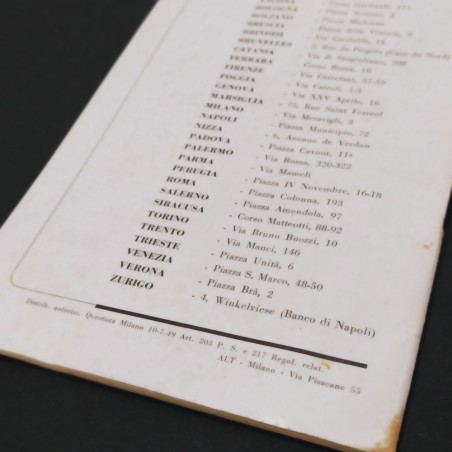 BOLOGNA - Piazza Nettuno, 2
BOLZANO - Piazza
BRESCIA - Piazza della Vittoria,
BRINDISI - Via Garibaldi,
BRUXELLES - Rue du Progrès (Gare du Nord)
CATANIA - Via di Sangiuliano, 208
FERRARA - Corso Roma, 18
FIRENZE - Via Cerretani, 57-59
FOGGIA - Via Cairoli, 1-3
GENOVA - Via XXV Aprile, 16
MARSIGLIA - 75, Rue Saint Ferreol
MILANO - Via Meravigli, 3
NAPOLI - Piazza Municipio, 72
NIZZA - 6, Avenue de Verdun
PADOVA - Piazza Cavour, 11a
PALERMO - Via Roma, 320-322
PARMA - Via Mameli
PERUGIA - Piazza IV Novembre, 16-18
ROMA - Piazza Colonna, 193
SALERNO - Piazza Amendola, 97
SIRACUSA - Corso Matteotti, 88-92
TORINO - Via Bruno Buozzi, 10
TRENTO - Via Manci, 146
TRIESTE - Piazza Unità, 6
VENEZIA - Piazza S. Marco, 48-50
VERONA - Piazza Brà, 2
ZURIGO - 4, Winkelviese (Banco di Napoli)
Distrib. autorizz. Questura Milano 10-7-49 Art. 203 P. S. e 217 Regol. relat.
ALT - Milano - Via Pisacane 55